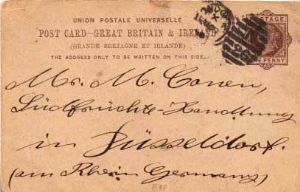 UNION POSTALE UNIVERSELLE
POST CARD-GREAT BRITAIN & IRELAND
(GRANDE BRETAGNE ET IRLANDE)
THE ADDRESS ONLY TO BE WRITTEN ON THIS SIDE.
PENNY
Mr. M. Conen,
Südfrüchte-Handlung
in Düsseldorf
(am Rhein Germany)